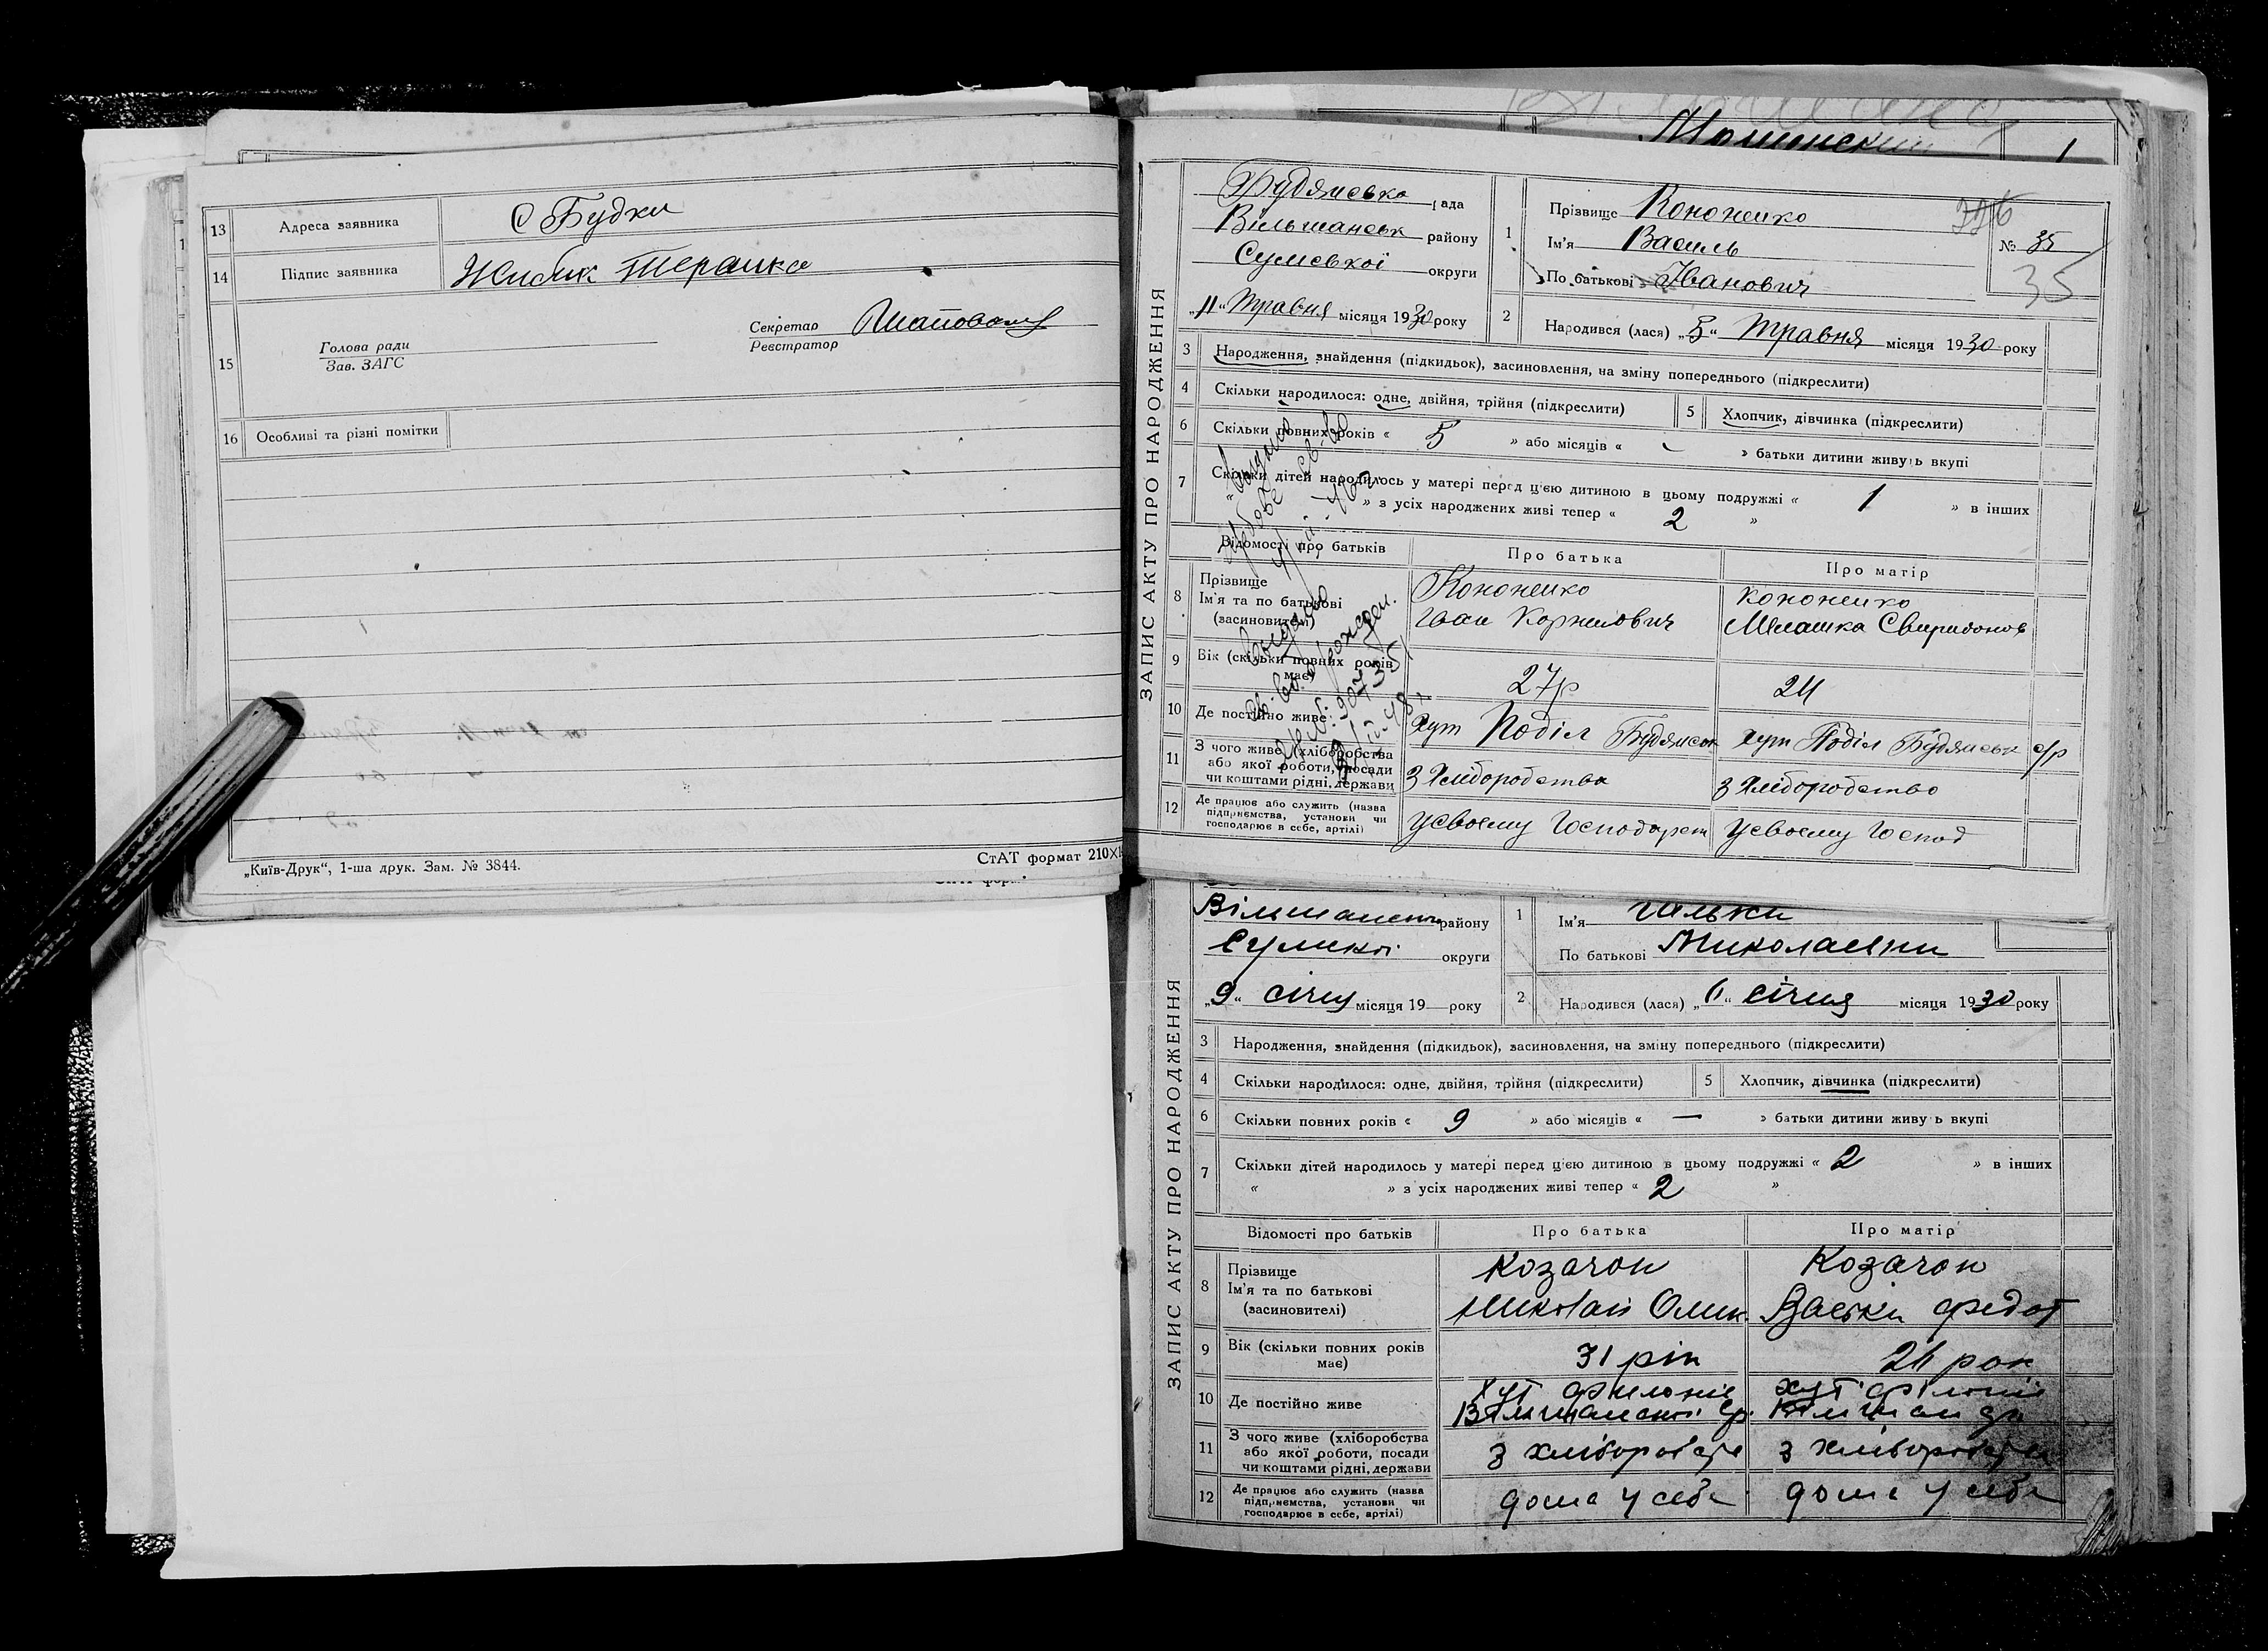 13 Адреса заявника С Будки
14 Підпис заявника
15 Голова ради
Зав. ЗАГС
Секретар
Реєстратор
16 Особливі та різні помітки
„Київ-Друк“, 1-ша друк. Зам. № 3844.
СтАТ формат 210
ЗАПИС АКТУ ПРО НАРОДЖЕННЯ
рада
Вільшанськ району
Сумської округи
„11“ Травня місяця 1930 року
1 Прізвище Кононенко
Ім'я Василь
По батькові Іванович
№ 35
35
2 Народився (лася) „5“ Травня місяця 1930 року
3 Народження, знайдення (підкидьок), засиновлення, на зміну попереднього (підкреслити)
4 Скільки народилося: одне, двійня, трійня (підкреслити) 5 Хлопчик, дівчинка (підкреслити)
6 Скільки повних років « 5 » або місяців « – » батьки дитини живуть вкупі
7 Скільки дітей народилось у матері перед цією дитиною в цьому подружжі « 1 » в інших
« » з усіх народжених живі тепер « 2 »
Відомості про батьків Про батька Про матір
8 Прізвище
Ім'я та по батькові
(засновителі)
Кононенко
Іван Корнилович
Кононенко
Мілашка Свиридонов
9 Вік (скільки повних років має) 27р 24
10 Де постійно живе Хут Поділ Будянськ хут Поділ Будянськ с/р
11 З чого живе (хліборобства
або якої роботи, посади
чи коштами рідні, держави
З Хлібородства З Хлібородство
12 Де працює або служить (назва
підприємства, установи чи
господарює в себе, артілі)
усвоєму Господарст усвоєму Господ
ЗАПИС АКТУ ПРО НАРОДЖЕННЯ
району
округи
„9“ січня місяця 19 року
1 Ім'я
По батькові Миколаевни
2 Народився (лася) „6“ січня місяця 1930 року
3 Народження, знайдення (підкидьок), засиновлення, на зміну попереднього (підкреслити)
4 Скільки народилося: одне, двійня, трійня (підкреслити) 5 Хлопчик, дівчинка (підкреслити)
6 Скільки повних років « 9 » або місяців « — » батьки дитини живуть вкупі
7 Скільки дітей народилось у матері перед цією дитиною в цьому подружжі « 2 » в інших
« » з усіх народжених живі тепер « 2 »
Відомості про батьків Про батька Про матір
8 Прізвище
Ім'я та по батькові
(засиновителі)
Козачок
Николай Олик.
Козачок
Васьки Федот
9 Вік (скільки повних років має) 31 рік
10 Де постійно живе
11 З чого живе (хліборобства
або якої роботи, посади
чи коштами рідні, держави
12 Де працює або служить (назва
підприємства, установи чи
господарює в себе, артілі)
дома у себе дома у себе